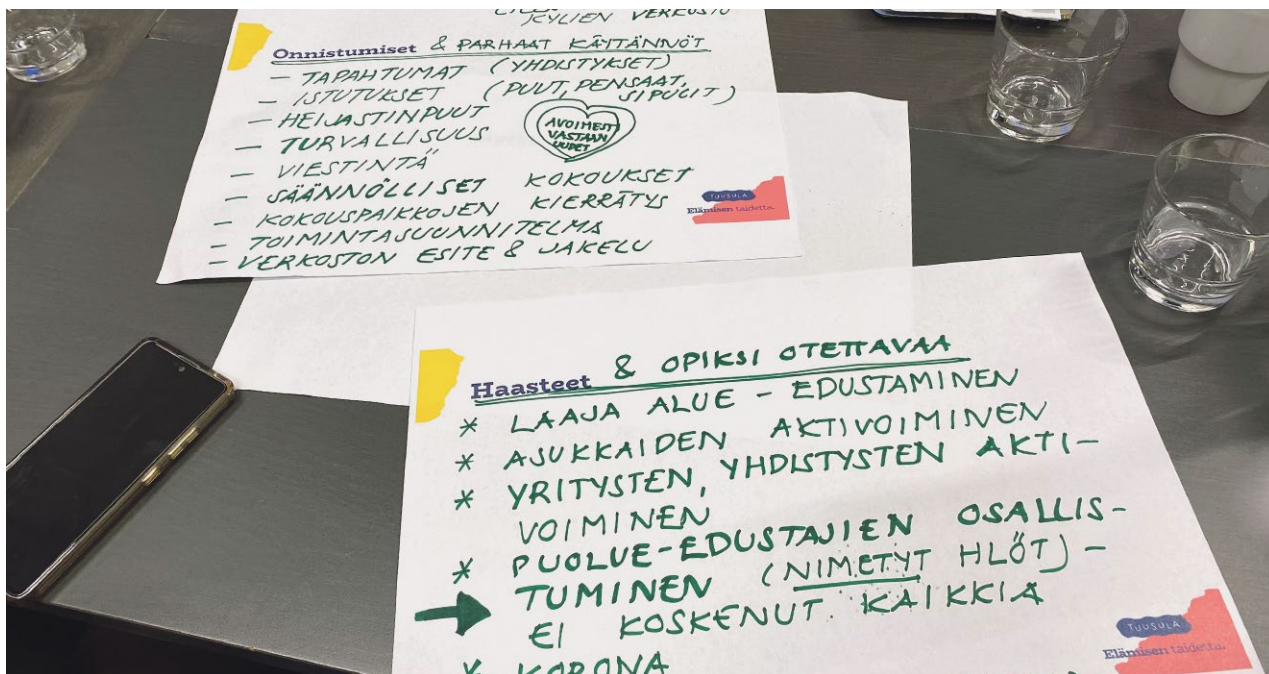 KYLIEN VERKOSTO
Onnistumiset & PARHAAT KÄYTÄNNÖT
– TAPAHTUMAT (YHDISTYKSET)
– ISTUTUKSET (PUUT, PENSAAT,
SIPULIT)
– HEIJASTINPUUT
AVOIMESTI
VASTAAN
UUDET
– TURVALLISUUS
– VIESTINTÄ
– SÄÄNNÖLLISET KOKOUKSET
– KOKOUSPAIKKOJEN KIERRÄTYS
– TOIMINTASUUNNITELMA
– VERKOSTON ESITE & JAKELU
TUUSULA
Elämisen taidetta.
Haasteet & OPIKSI OTETTAVAA
* LAAJA ALUE – EDUSTAMINEN
* ASUKKAIDEN AKTIVOIMINEN
* YRITYSTEN, YHDISTYSTEN AKTI-
VOIMINEN
* PUOLUE-EDUSTAJIEN OSALLIS-
→ TUMINEN (NIMETYT HLÖT) –
EI KOSKENUT KAIKKIA
* KORONA
TUUSULA
Elämisen taidetta.